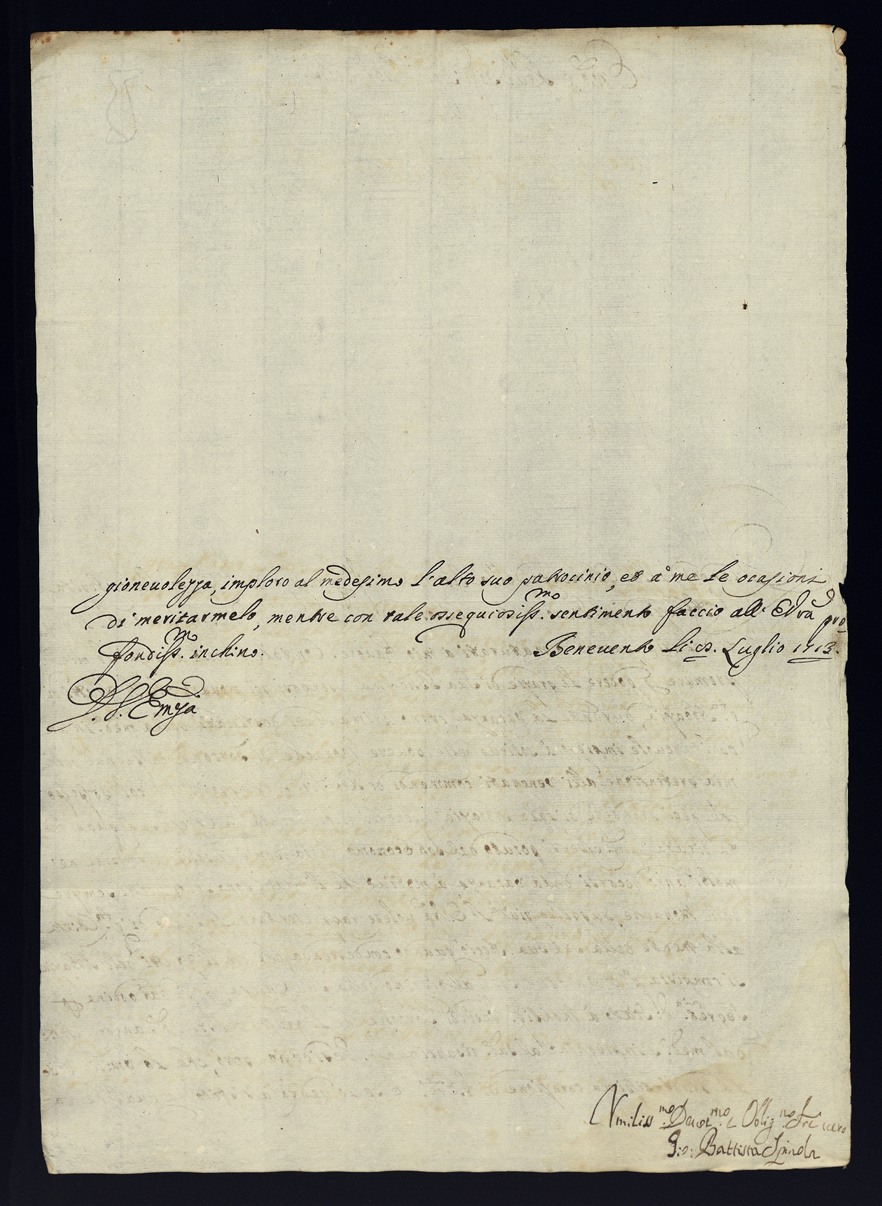 gioneuolezza, imploro al medesimo l'alto suo patrocinio, et à me le ocasioni
di meritarmelo, mentre con tale ossequiosiss.mo sentimento faccio all' E Vra pro-
fondiss.mo inchino. Beneuento li Luglio 1713.
Emza
Vmiliss.mo Deuot.mo e Oblig.mo
Gio: Battista Spinola